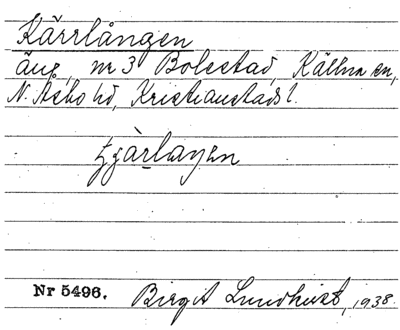 Kärrlången
äng, nr 3 Bolestad, Källna sn,
N. Åsbo hd, Kristianstads l.
Nr 5496. Birgit Lundkvist, 1938.